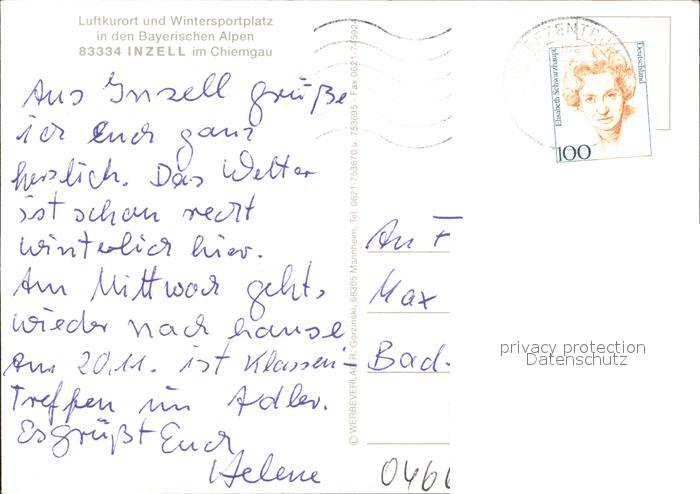 Luftkurort und Wintersportplatz
in den Bayerischen Alpen
83334 INZELL im Chiemgau
Aus Inzell grüße
ich Euch ganz
herzlich. Das Wetter
ist schon recht
winterlich hier.
Am Mittwoch geht's
wieder nach hause
Am 20.11. ist Klassen-
Treffen im Adler.
Es grüßt Euch
Helene
© WERBEVERLAG R. Gorzinski, 68305 Mannheim, Tel. 0621-753670 u. 753695 · Fax 0621-745924
Elisabeth Schwarzhaupt
Deutschland
100
An F
Max
Bad-
0466
privacy protection
Datenschutz